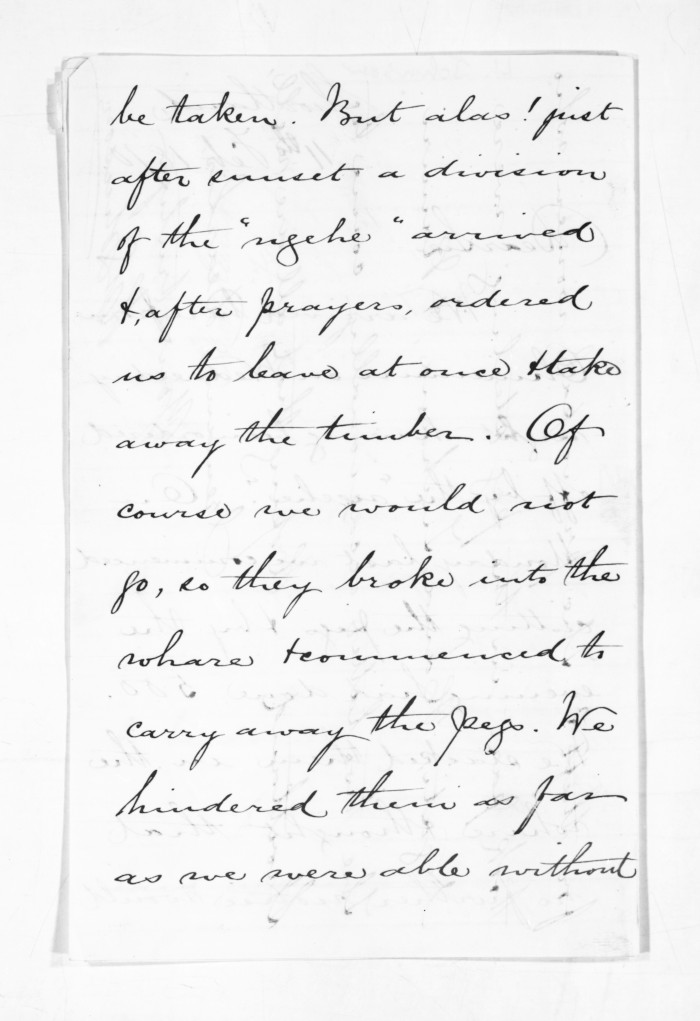 be taken. But alas! just
after sunset a division
of the "ngehe" arrived
&, after prayers, ordered
us to leave at once & take
away the timber. Of
course we would not
go, so they broke into the
whare & commenced to
carry away the pegs. We
hindered them as far
as we were able without